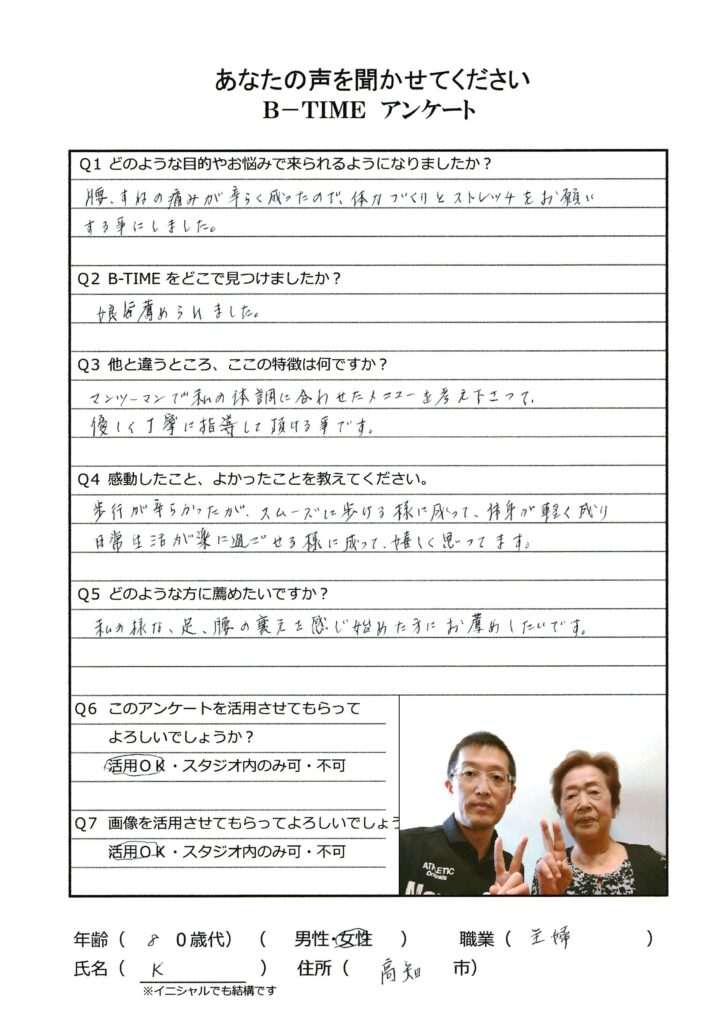 あなたの声を聞かせてください
B－TIME アンケート
Q1 どのような目的やお悩みで来られるようになりましたか？
腰、すねの痛みが辛らく成ったので、体力づくりとストレッチをお願い
する事にしました。
Q2 B-TIME をどこで見つけましたか？
娘薦められました。
Q3 他と違うところ、ここの特徴は何ですか？
マンツーマンで私の体調に合わせたメニューを考え下さって、
優しく丁寧に指導して頂ける事です。
Q4 感動したこと、よかったことを教えてください。
歩行が辛らかったが、スムーズに歩ける様に成って、体身が軽く成り
日常生活が楽に過ごせる様に成って、嬉しく思ってます。
Q5 どのような方に薦めたいですか？
私の様な、足、腰の衰えを感じ始めた方にお薦めしたいです。
Q6 このアンケートを活用させてもらって
よろしいでしょうか？
活用ＯＫ・スタジオ内のみ可・不可
Q7 画像を活用させてもらってよろしいでしょう
活用ＯＫ・スタジオ内のみ可・不可
ATHLETIC
年齢（ 8 0歳代） （ 男性・女性 ） 職業（ 主婦 ）
氏名（ K ） 住所（ 高知 市）
※イニシャルでも結構です